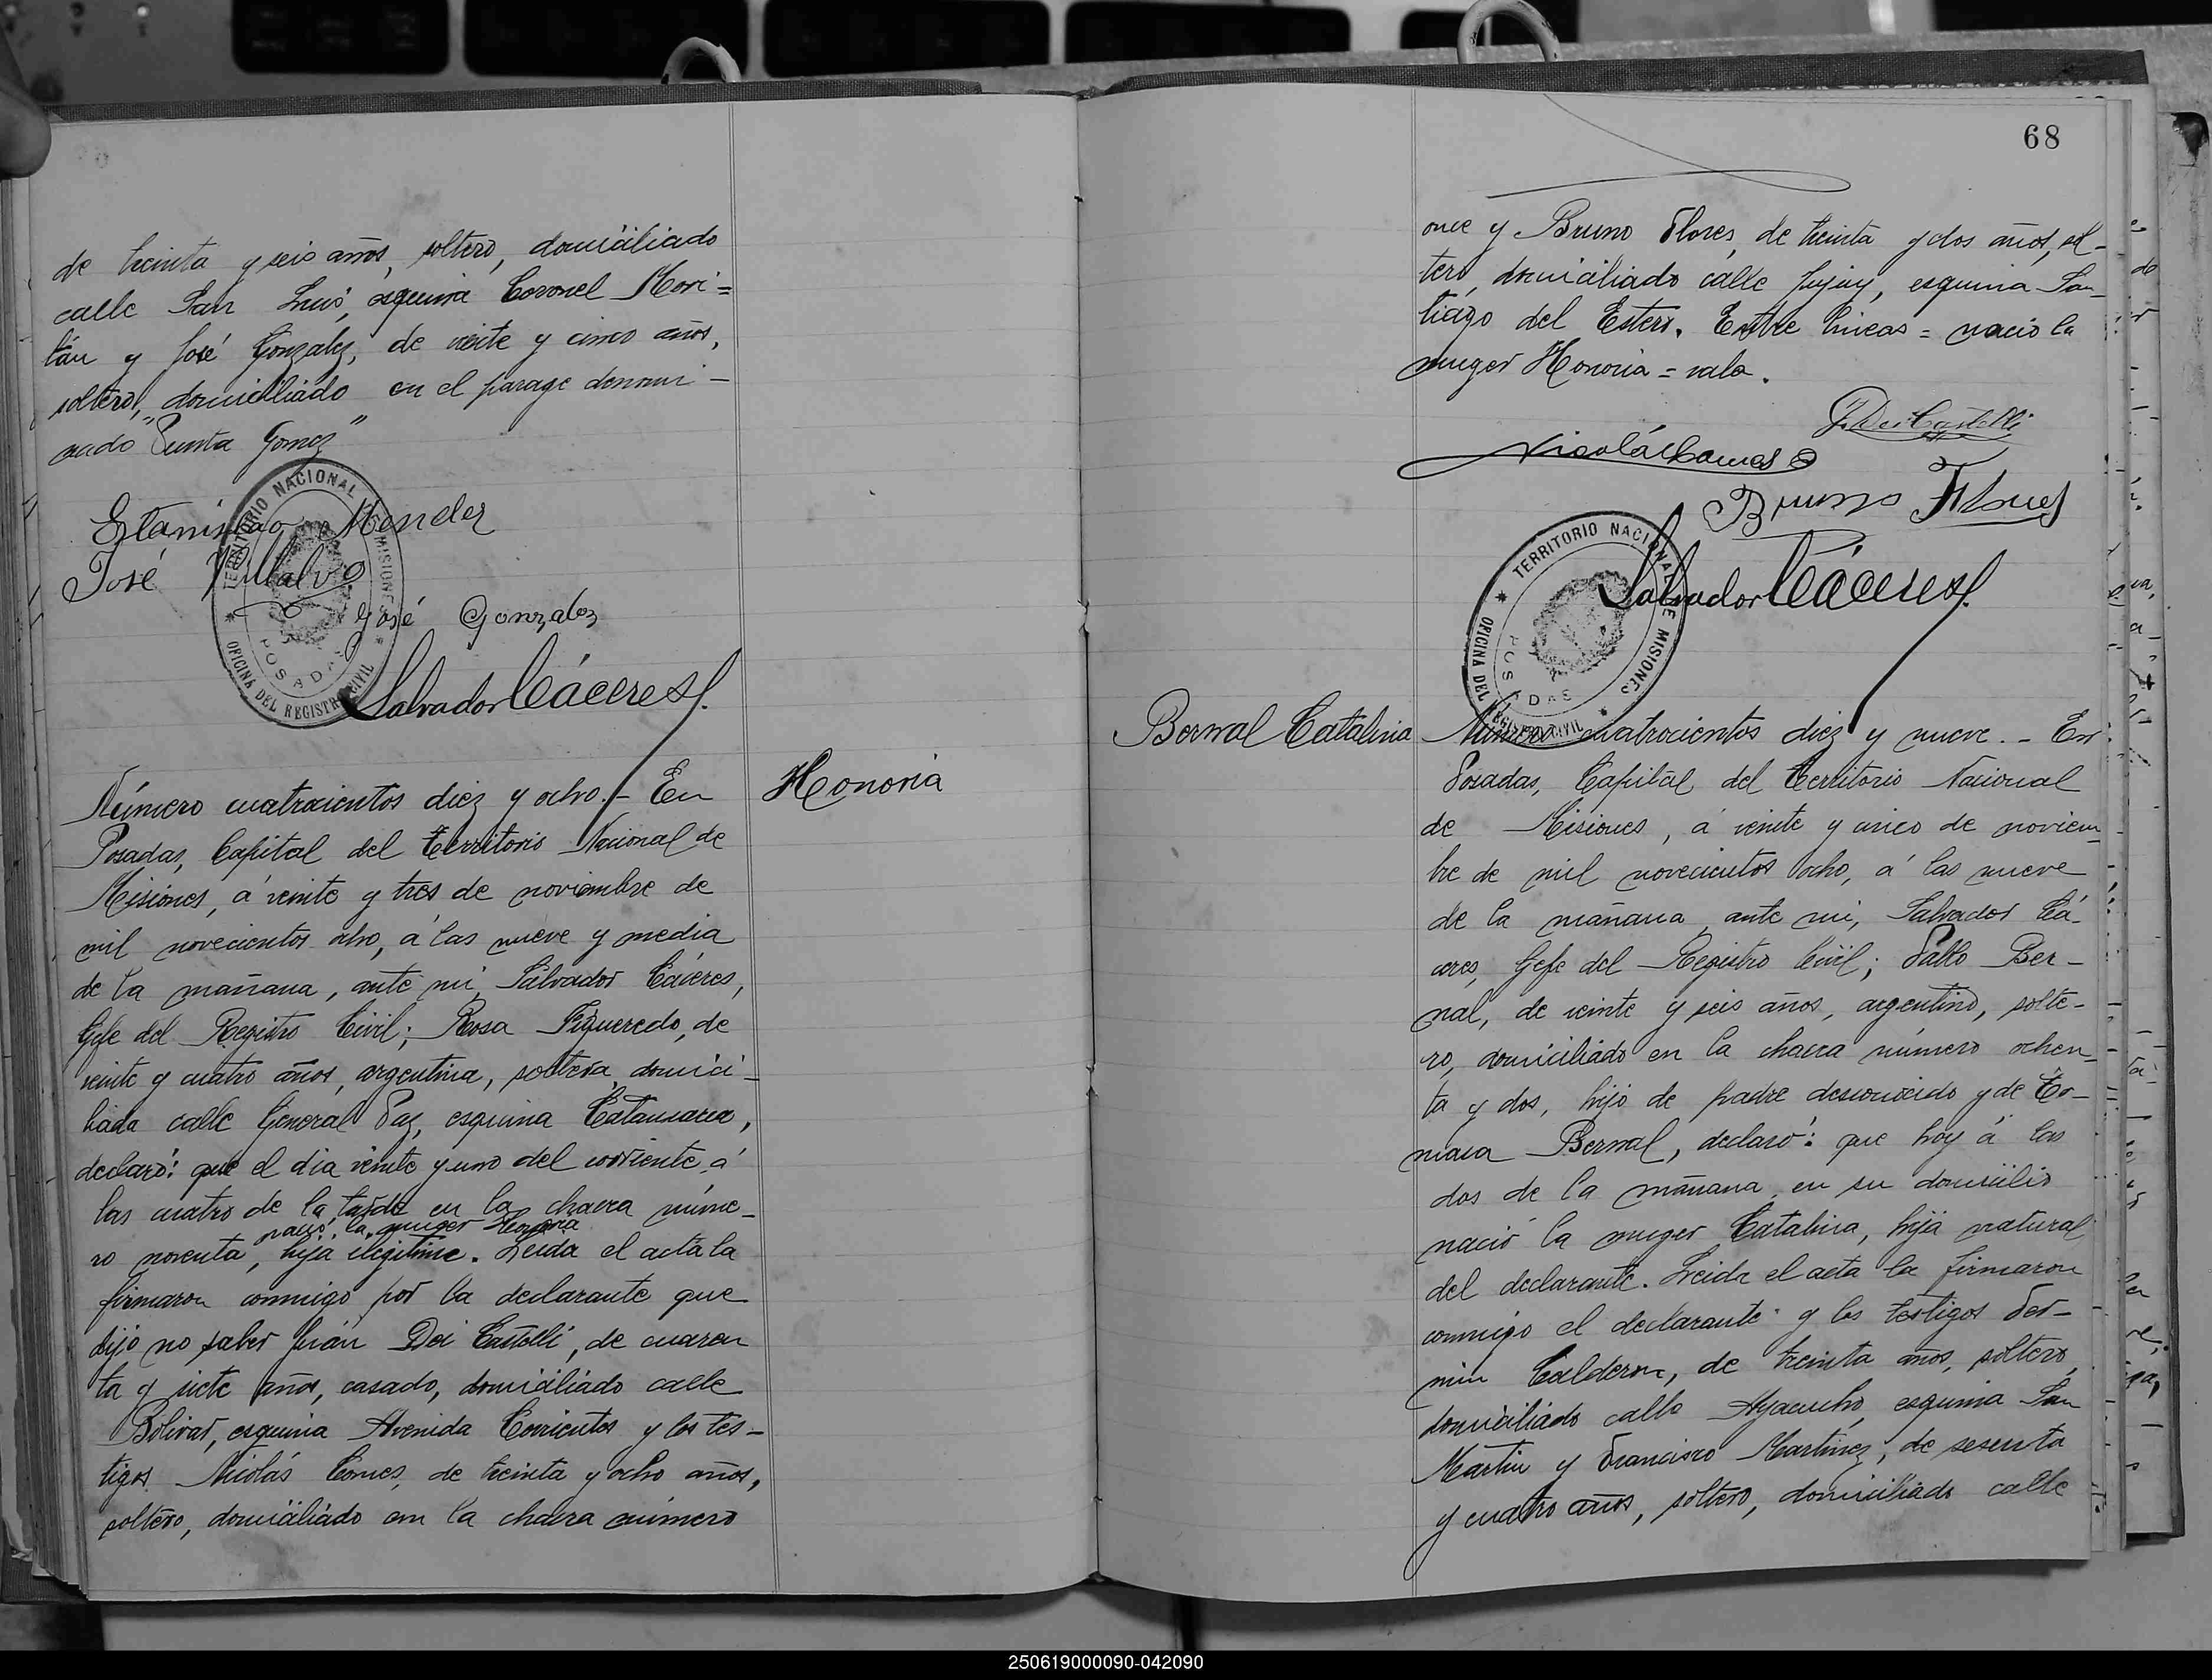 de treinta y seis años, soltero, domiciliado
calle San Luis, esquina Coronel Mori=
tán y José Gonzalez, de veinte y cinco años,
soltero, domiciliado en el parage denomi-
nado "Punta Gomez"
Estanislao Mendez
José Villalva
José Gonzalez
Salvador Cáceres
TERRITORIO NACIONAL MISIONES
OFICINA DEL REGISTRO CIVIL
POSADAS
Honoria
Número cuatrocientos diez y ocho.- En
Posadas, Capital del Territorio Nacional de
Misiones, á veinte y tres de noviembre de
mil novecientos ocho, á las nueve y media
de la mañana, ante mi, Salvador Cáceres,
Gefe del Registro Civil; Rosa Figueredo, de
veinte y cuatro años, argentina, soltera, domici-
liada calle General Paz, esquina Catamarca,
declaró: que el dia veinte y uno del corriente, á
las cuatro de la tarde en la chacra núme-
nació la muger Honoria
ro noventa, hija ilegitima. Leida el acta la
firmaron conmigo por la declarante que
dijo no saber Juán Dei Castelli, de cuaren
ta y siete años, casado, domiciliado calle
Bolivar, esquina Avenida Corrientes y los tes-
tigos Nicolás Comes, de treinta y ocho años,
soltero, domiciliado en la chacra número
68
once y Bruno Flores, de treinta y dos años, sol-
tero, domiciliado calle Jujuy, esquina San-
tiago del Estero. Entre lineas = nació la
muger Honoria = vale.
J. Dei Castelli
Nicolás Comes
Bruno Flores
Salvador Cáceres
TERRITORIO NACIONAL DE MISIONES
OFICINA DEL REGISTRO CIVIL
POSADAS
Bernal Catalina
Número cuatrocientos diez y nueve.- En
Posadas, Capital del Territorio Nacional
de Misiones, á veinte y cinco de noviem-
bre de mil novecientos ocho, á las nueve
de la mañana, ante mi, Salvador Cá-
ceres, Gefe del Registro Civil; Pablo Ber-
nal, de veinte y seis años, argentino, solte-
ro, domiciliado en la chacra número ochen-
ta y dos, hijo de padre desconocido y de To-
masa Bernal, declaró: que hoy á las
dos de la mañana, en su domicilio
nació la muger Catalina, hija natural
del declarante. Leida el acta la firmaron
conmigo el declarante y los testigos Fer-
min Calderon, de treinta años, soltero,
domiciliado calle Ayacucho, esquina San
Martin y Francisco Martinez, de sesenta
y cuatro años, soltero, domiciliado calle
250619000090-042090